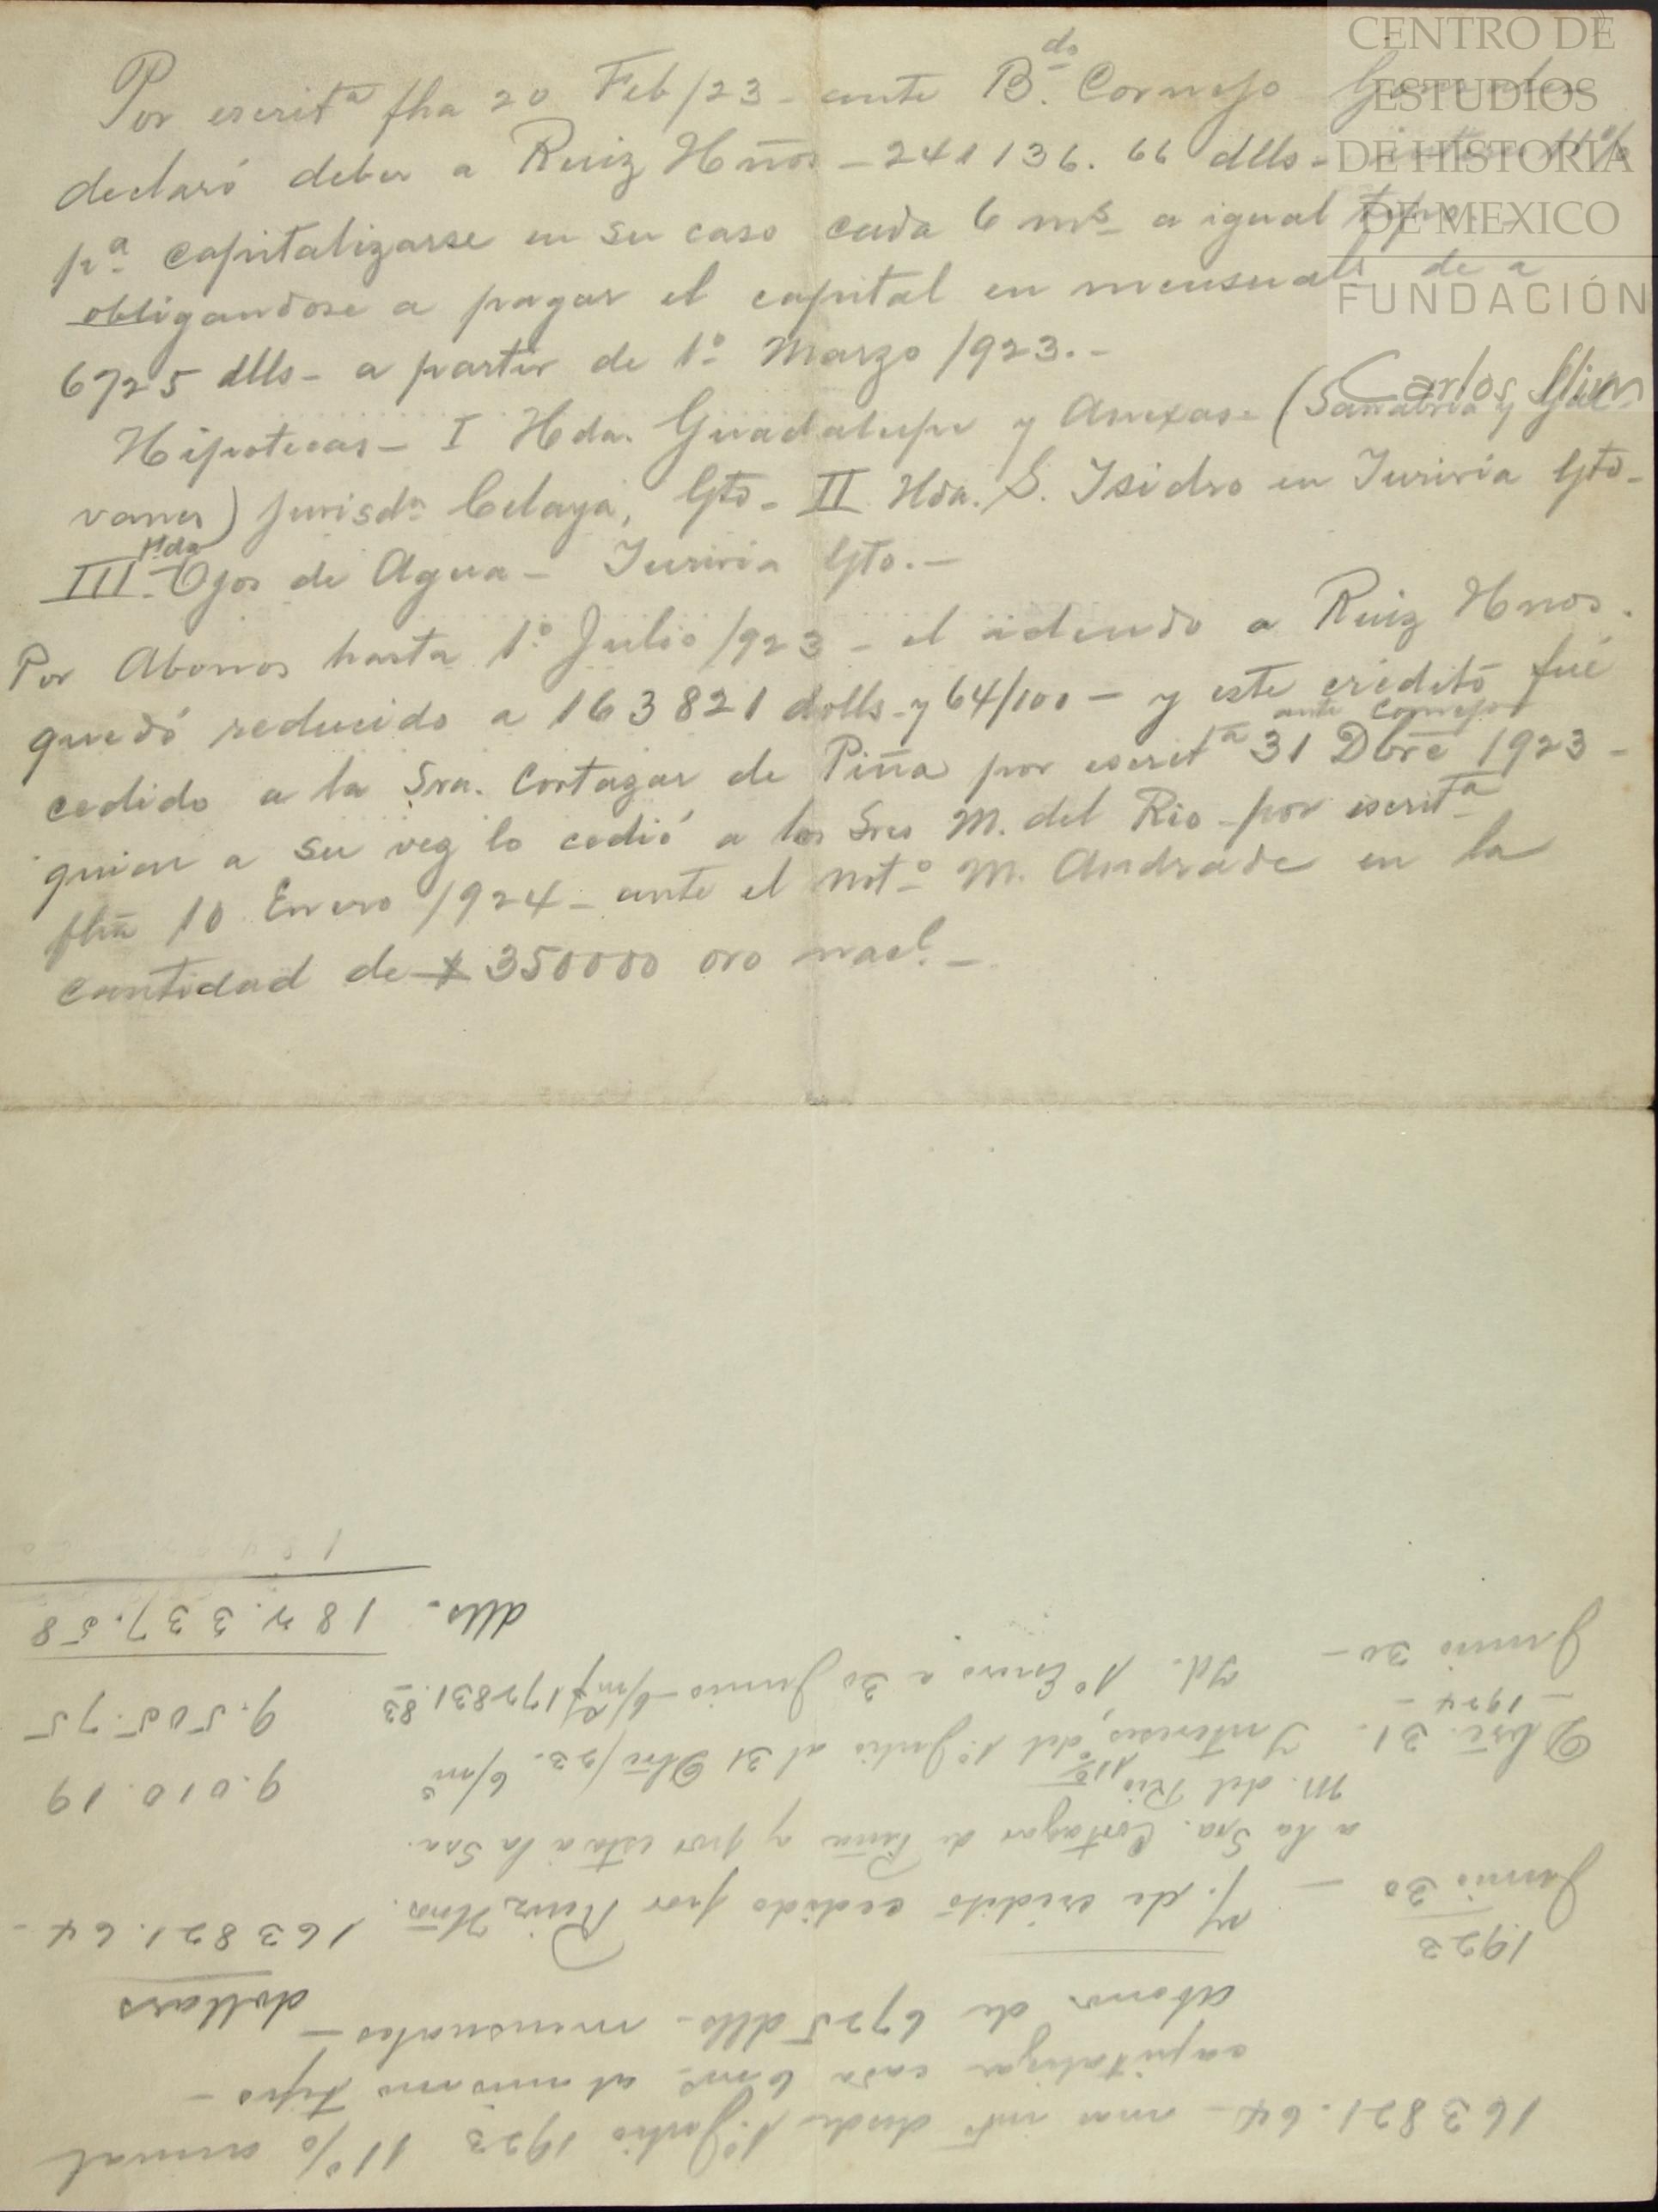 Por escritª fha 20 Feb/23 - ante B.do Cornejo
declaró deber a Ruiz Hños - 241136.66 dlls -
pª capitalizarse en su caso cada 6 ms a igual tipo. -
obligandose a pagar el capital en mensuals de a
6725 dlls - a partir de 1º Marzo 1923. -
Hipotecas - I Hda. Guadalupe y Anexas - (Sanabria y Gal-
vanes) jurisdn Celaya, Gto - II Hda. S. Isidro en Yuriria Gto -
III - Hda Ojos de Agua - Yuriria Gto. -
Por Abonos hasta 1º Julio 1923 - el adeudo a Ruiz Hnos.
quedó reducido a 163821 dolls - y 64/100 - y este crédito fué
cedido a la Sra. Cortazar de Piña por escritª ante Cornejo 31 Dbre 1923 -
quien a su vez lo cedió a los Sres M. del Rio - por escritª
fha 10 Enero 1924 - ante el notº M. Andrade en la
cantidad de $ 350000 oro nacl. -
163821.64 - mas intˢ desde 1º Julio 1923 11% anual
capitalizar cada 6 ms al mismo tipo -
Abonos de 6725 dlls - mensuales -
dollars
1923
Junio 30 - de crédito cedido por Ruiz Hños. 163821.64 -
a la Sra. Cortazar de Piña y por esta a la Sra.
M. del Rio
Dbre. 31. Intereses, 11% del 1º Julio al 31 Dbre/23. 6/ms 9.010.19
- 1924 -
Junio 30 - Id. 1º Enero a 30 Junio - 6/ms s/172831.83 9.505.75
dlls. 182.337.58
CENTRO DE
ESTUDIOS
DE HISTORIA
DE MEXICO
FUNDACIÓN
Carlos Slim